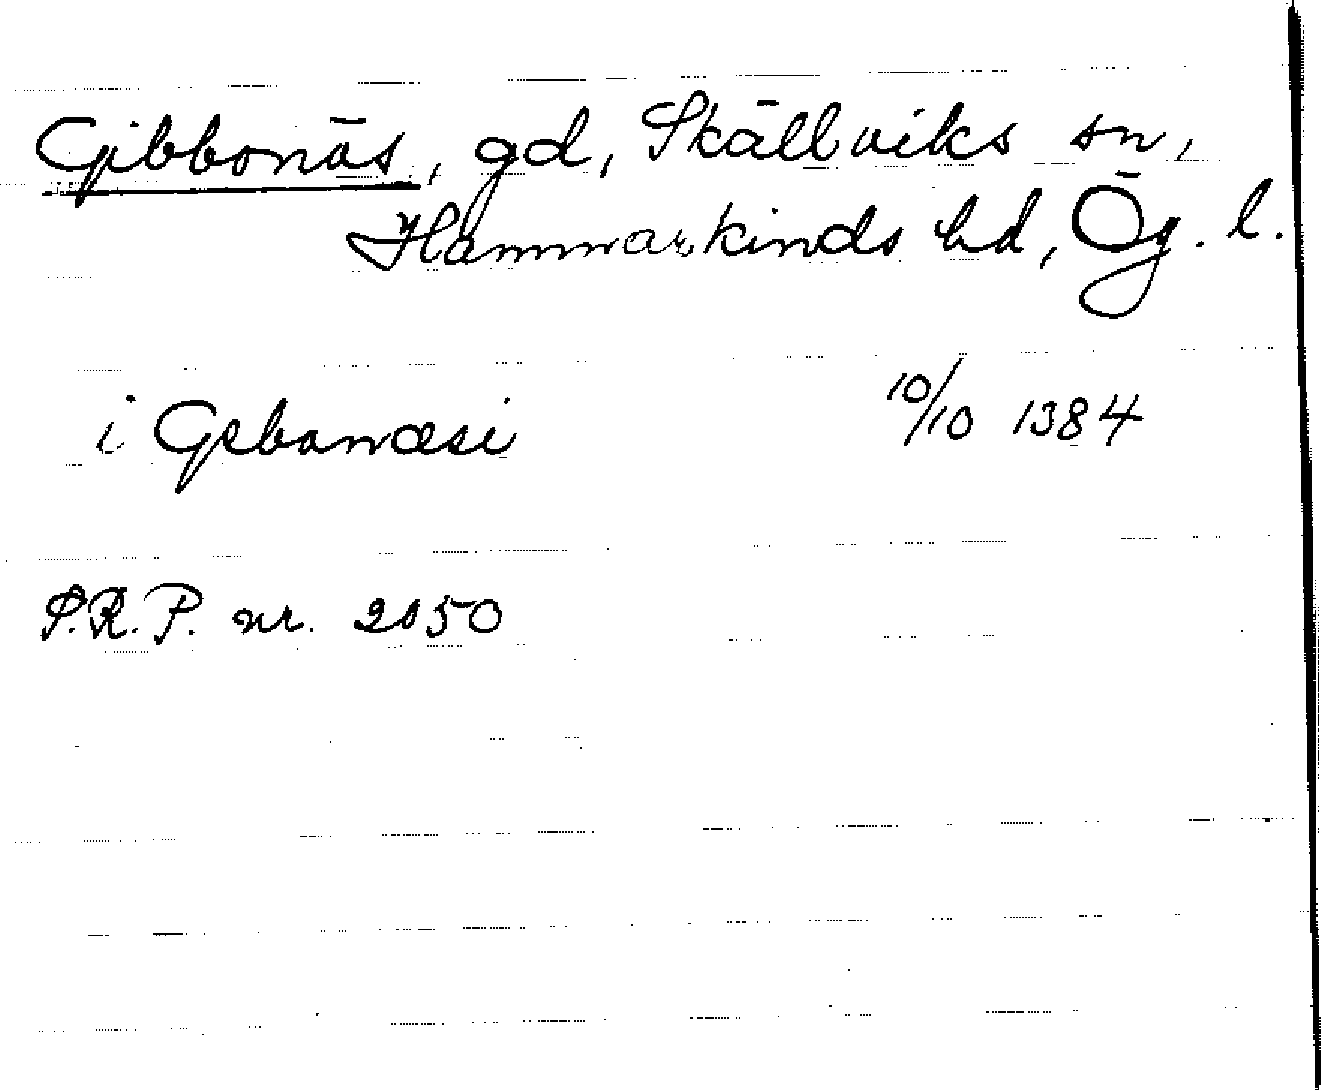 Gibbonäs, gd, Skällviks sn,
Hammarkinds hd, Ög. l.
i Gebanæsi 10/10 1384
S.R.P. nr. 2050